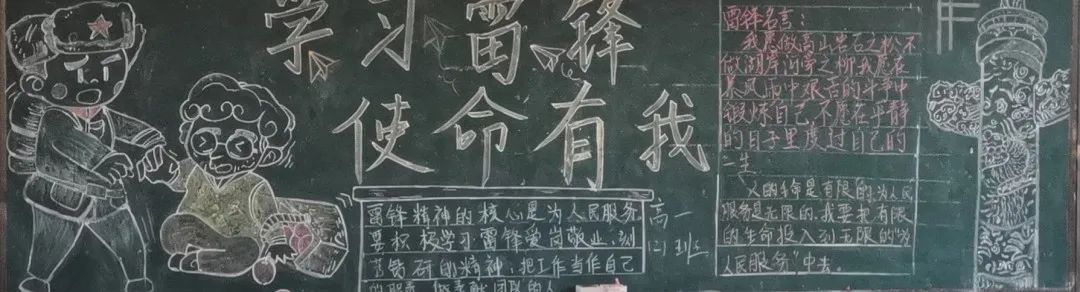 学习雷锋
使命有我
雷锋精神的核心是为人民服务
要积极学习雷锋爱岗敬业、刻
苦钻研的精神，把工作当作自己
高一
(2)班
雷锋名言：
我愿做高山岩石之松不
做湖岸河旁之柳我愿在
暴风雨中艰苦的斗争中
锻炼自己不愿在平静
的日子里度过自己的
一生
人的生命是有限的，为人民
服务是无限的，我要把有限
的生命投入到无限的“为
人民服务”中去。